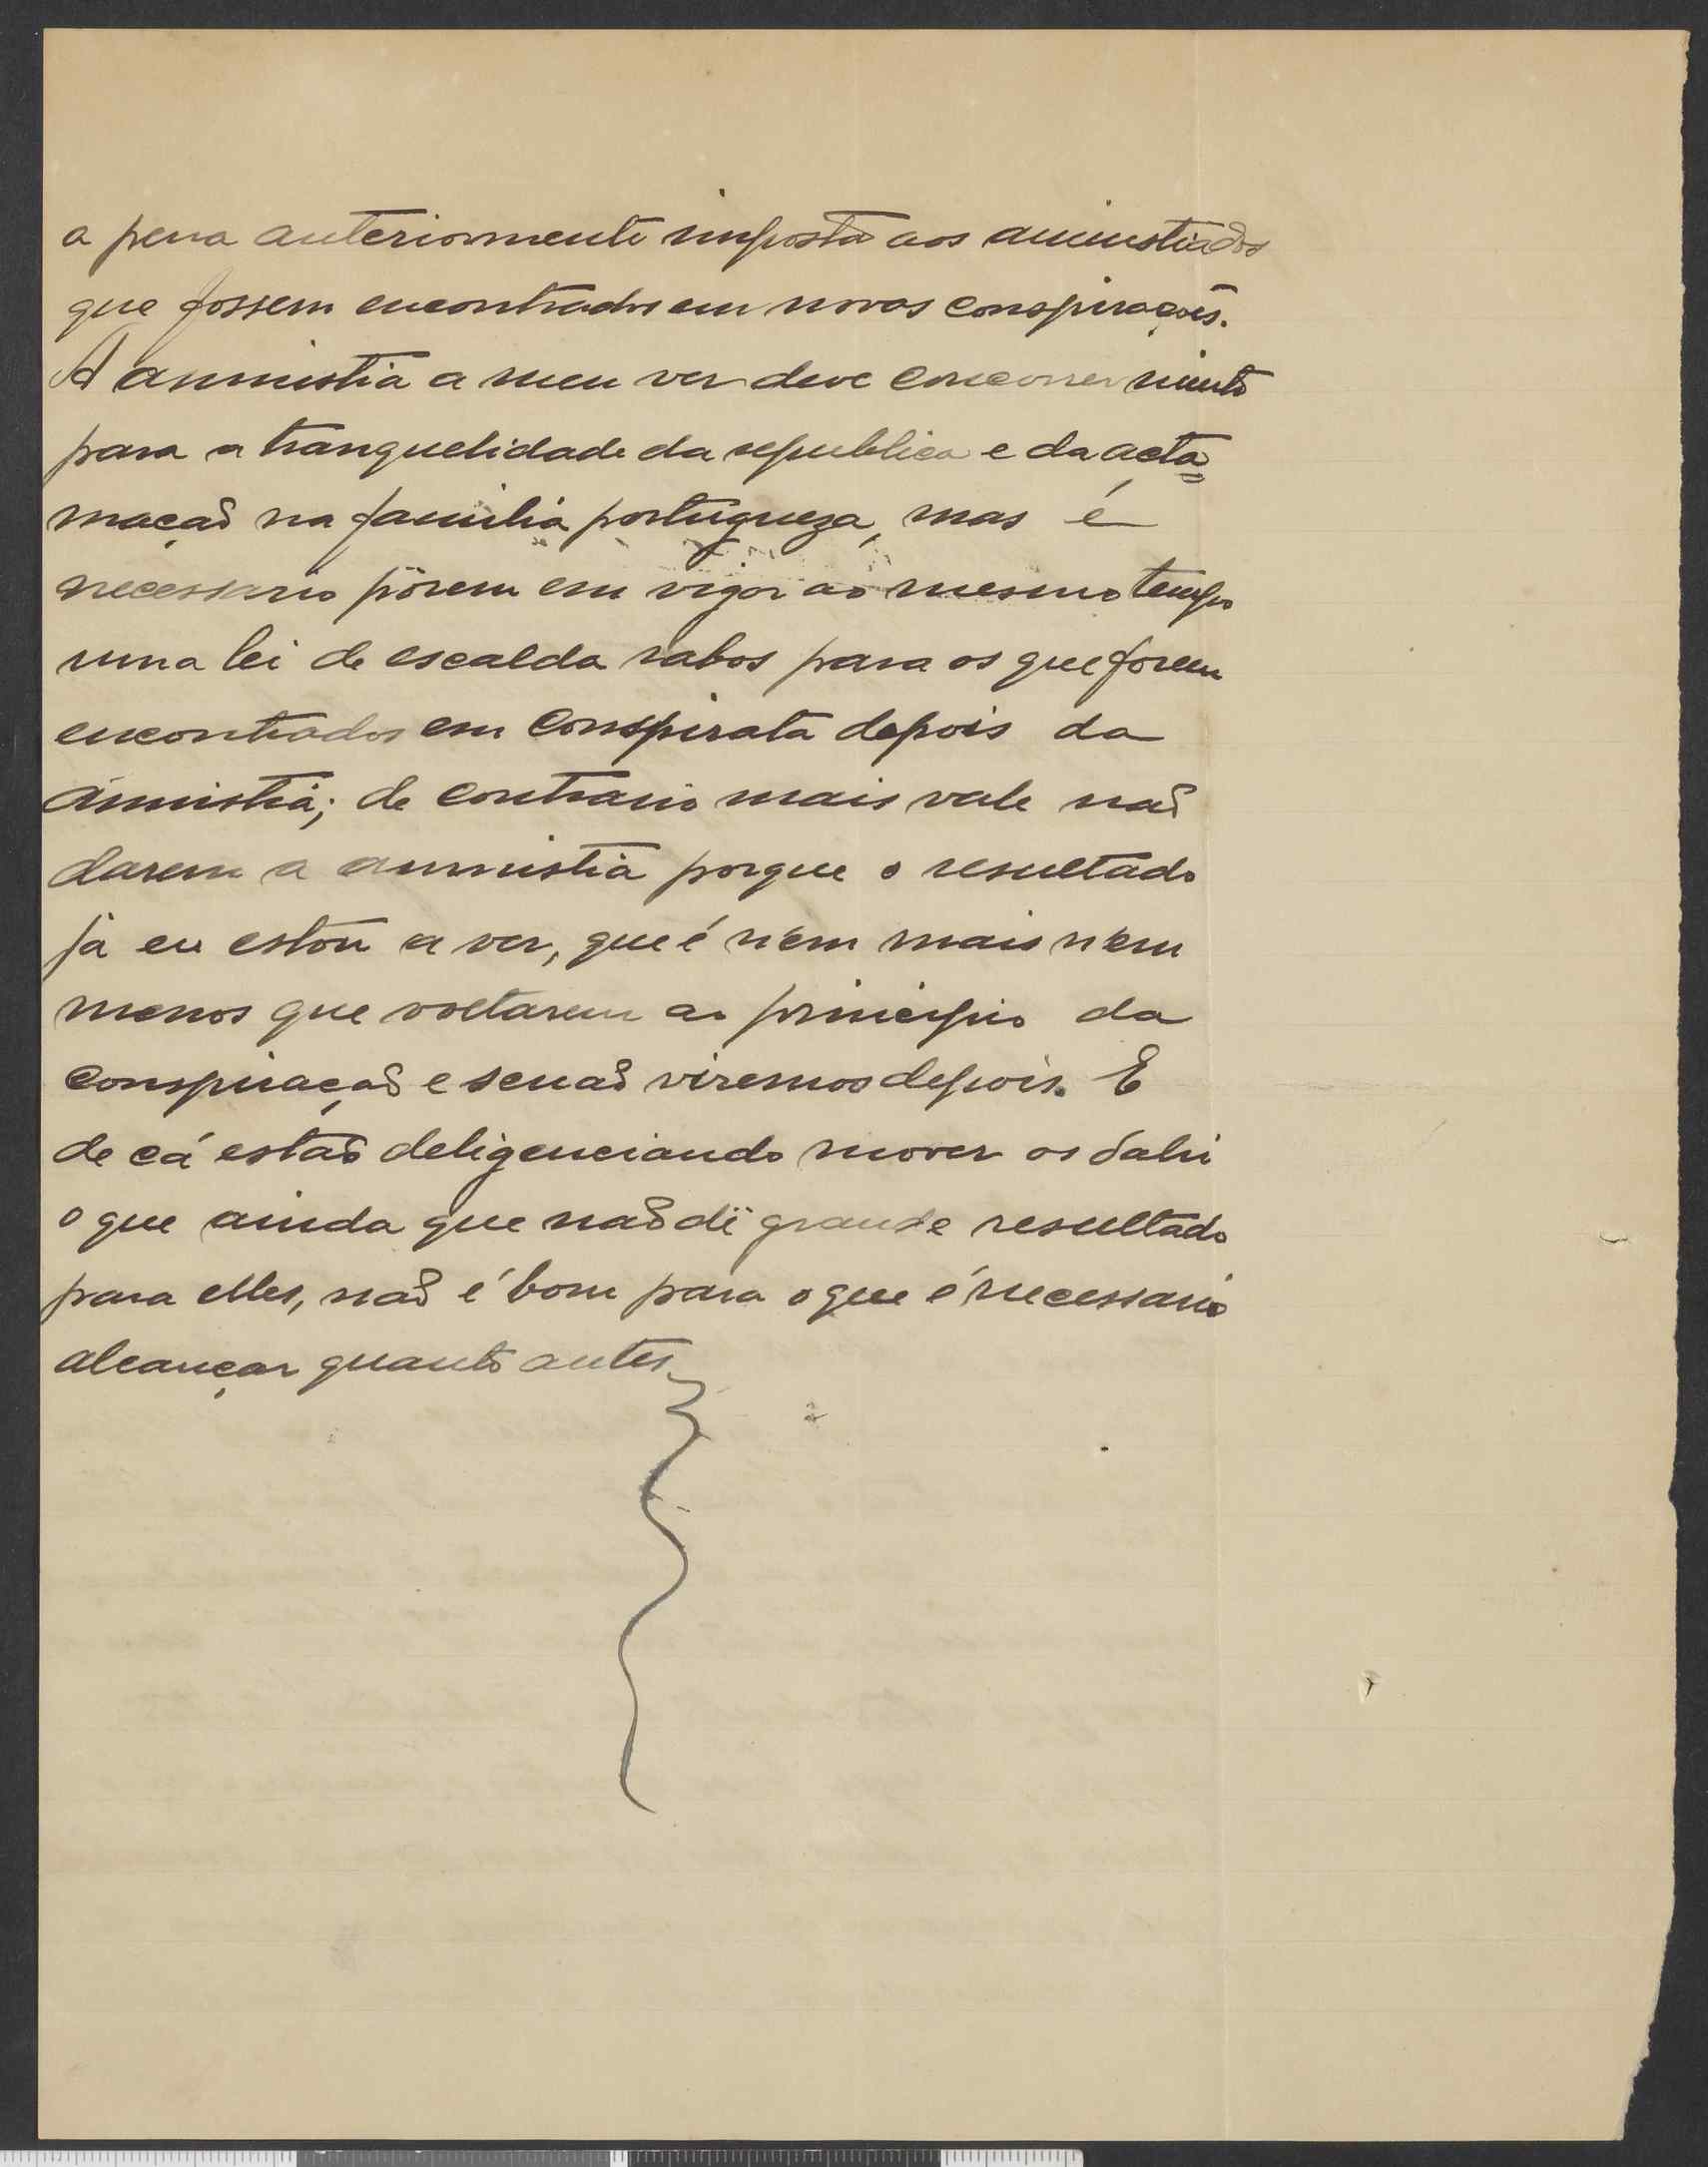 a pena anteriormente imposta aos aministiados
que fossem encontrados em novas conspirações.
A amnistia a meu ver deve concorrer muito
para a tranquelidade da republica e da acta=
mação na familia portugueza, mas é
necessario pôrem em vigor ao mesmo tempo
uma lei de escalda rabos para os que forem
encontrados em conspirata depois da
amnistia; de contrario mais vale não
darem a amnistia porque o resultado
já eu estou a ver, que é nem mais nem
menos que voltarem ao principio da
conspiração e senão viremos depois. E
de cá estão deligenciando mover os dahi
o que ainda que não dê grande resultado
para elles, não é bom para o que é necessario
alcançar quanto antes